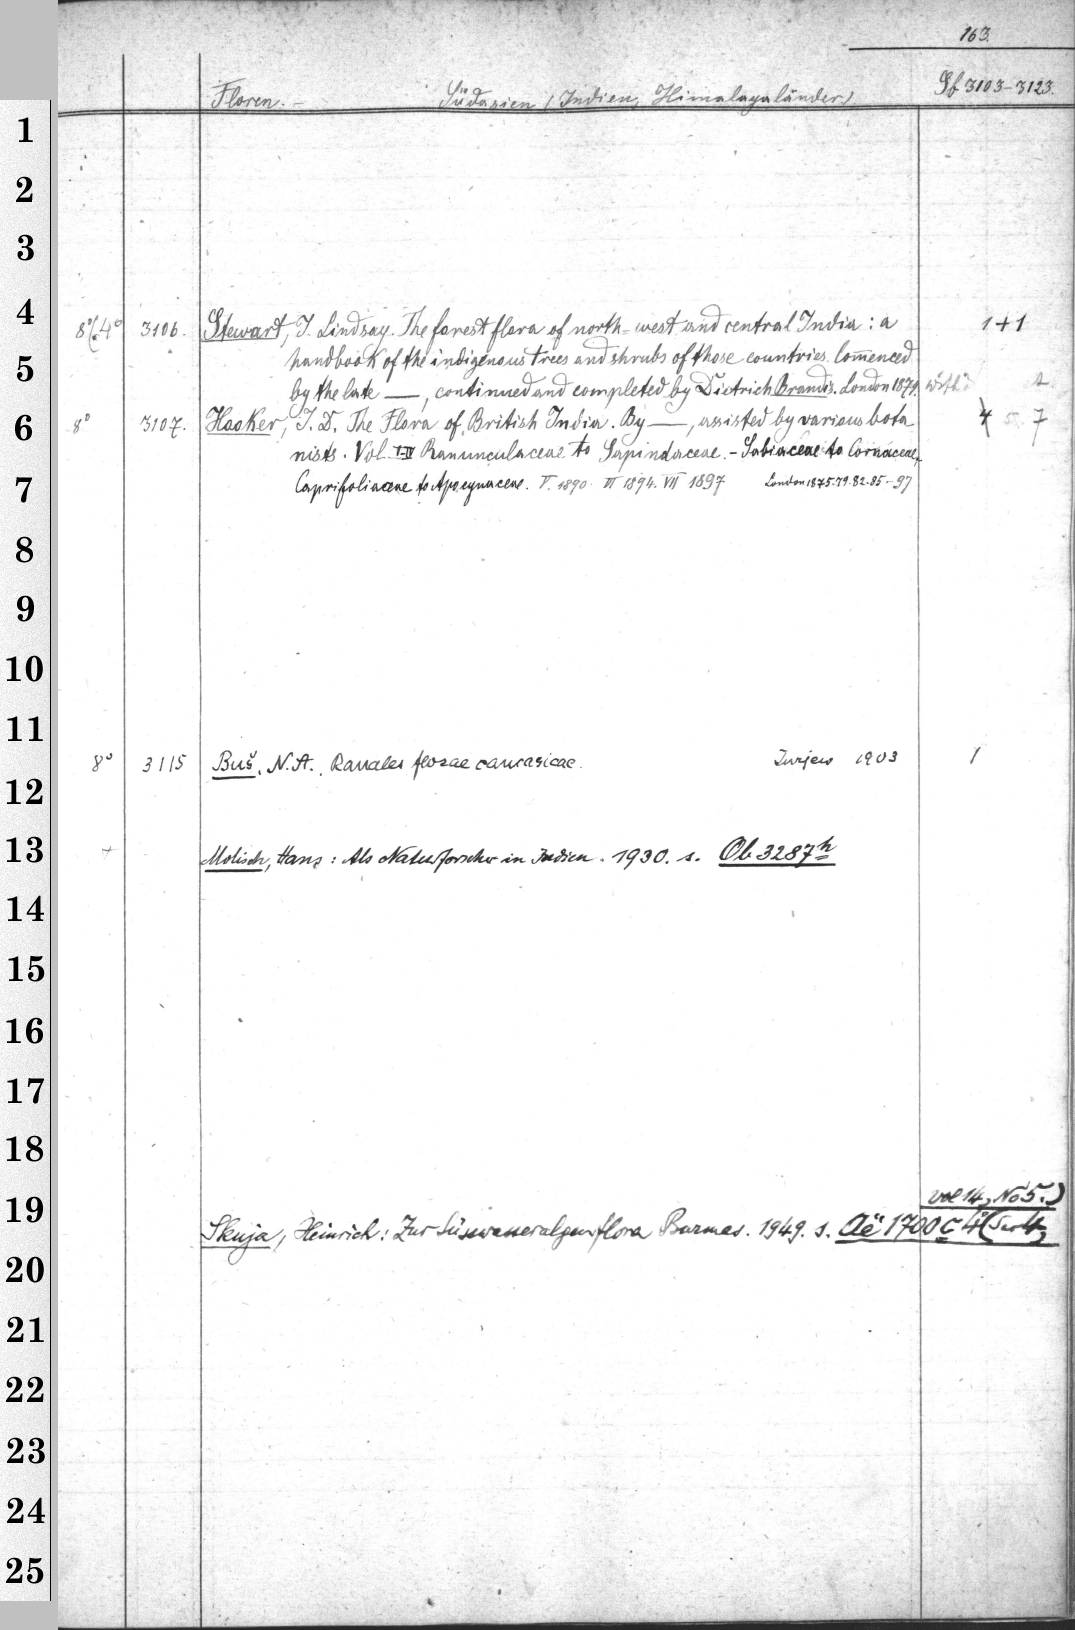 163.
Floren. – Südasien (Indien, Himalayaländer) Sf 3103–3123.
1
2
3
4
8° (4° 3106. Stewart, J. Lindsay. The forest flora of north-west and central India: a 1+1
handbook of the indigenous trees and shrubs of those countries. Com̄enced
5
by the late —, continued and completed by Dietrich Brandis. London 1874. 2
6
8° 3107. Hooker, J. D. The Flora of British India. By —, assisted by various bota 4 5. 7
nists. Vol. I-IV Ranunculaceae to Sapindaceae. – Sabiaceae to Cornaceae,
7
Caprifoliaceae to Apocynaceae. V. 1890. VI 1894. VII 1897 London 1875.79.82.85–97
8
9
10
11
8° 3115 Buš, N. A. Ranales florae caucasicae. Jurjew 1903 1
12
13
+ Molisch, Hans: Als Naturforscher in Indien. 1930. s. Ob 3287h
14
15
16
17
18
vol 14, No 5.)
19
Skuja, Heinrich: Zur Süsswasseralgenflora Burmas. 1949. s. Aë" 1700 c 4° (Ser 4,
20
21
22
23
24
25